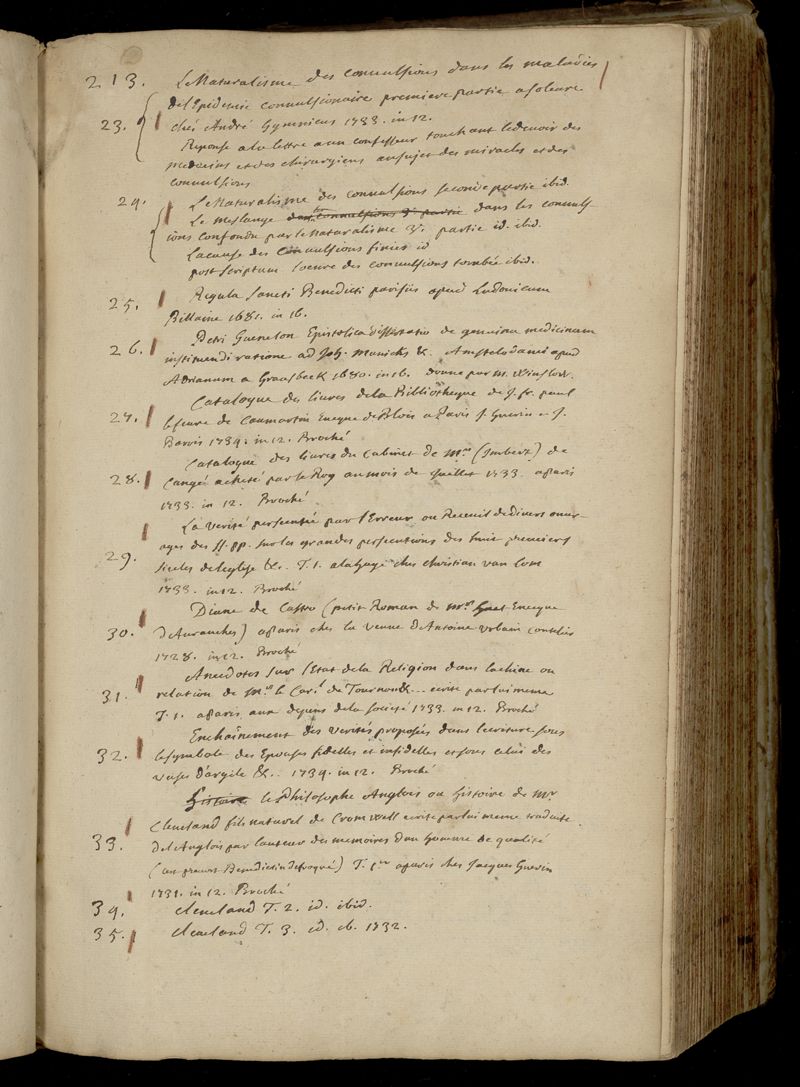 213. Le Naturalisme des convulsions dans les maladies
de l'Epidemie convulsionaire premiere partie a soleure
23. chés André Gymnicus 1733. in 12.
Reponse a la lettre a un confesseur touchant le devoir des
medecins et des chirurgiens au sujet des miracles et des
convulsions
24. Le Naturalisme des convulsions seconde partie ibid.
Le Meslange dans les convulsions 3e partie dans les convuls-
ions confondu par le Naturalisme 3e. partie id. ibid.
La cause des convulsions finies id
post scriptum l'oeuvre des convulsions tombée ibid.
25. Regula sancti Benedicti parisiis apud Ludovicum
Billaine 1681. in 16.
26. Petri Guenelon Epistolica dissertatio de genuina medicinam
instituendi ratione ad Joh. Municks &. Amstelodami apud
Adrianum a Graasbeek 1680. in 16. donné par m. Winslow.
27. Catalogue des livres de la Bibliotheque de J. fr. paul
lefevre de Caumartin Eveque de Blois a Paris J. Guerin et J.
Barois 1734. in 12. Broché
28. Catalogue des livres du cabinet de Mr. (Imbert) de
Cangé acheté par le Roy au mois de Juillet 1733 a Paris
1733. in 12. Broché
29. La verité persecutée par l'Erreur ou Recueil de divers ouvr-
ages des SS. pp. sur les grandes persecutions des huit premiers
siecles de l'eglise &c. T. 1. a la haye ches christian van lom
1733. in 12. Broché
30. Diane de Castro (petit Roman de Mr Huet Eveque
D'Avranches) a Paris ches la veuve d'Antoine Urbain coustelier
1728. in 12. Broché
31. Anecdotes sur l'Etat de la Religion dans la chine ou
relation de Mr. le Card. de Tournon &... ecrite par lui meme
T. 1. a Paris aux depens de la societé 1733. in 12. Broché
32. Enchaînement des verités proposées dans l'ecriture sous
le symbole des Epouses fidelles et infidelles et sous celui des
vases d'argile &c... 1734. in 12. Broché
Histoire le Philosophe Anglois ou Histoire de Mr
33. Cleveland fils naturel de Cromwell ecrite par lui meme traduite
de l'Anglois par l'auteur des memoires d'un homme de qualité
(un prevost Benedictin defroqué) T. 1er a Paris ches Jacques Guerin
1731. in 12. Broché
34. Cleveland T. 2. id. ibid.
35. Cleveland T. 3. id. ib. 1732.